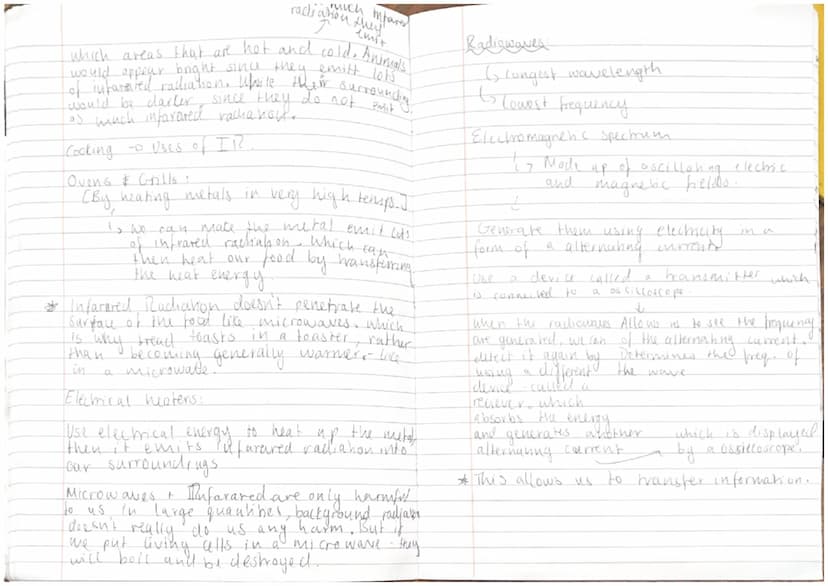 much infrared
radiation they
emit
which areas that are hot and cold. Animals
would appear bright since they emitt lots
of infarared radiation. While their surrounding
would be darker, since they do not emit
as much infarared radiation.
Cooking → Uses of IR.
Ovens & Grills:
[By heating metals in very high temps.]
↳ we can make the metal emit lots
of infrared radiation. Which can
then heat our food by transferring
the heat energy
* Infarared Radiation doesn't penetrate the
surface of the food like microwaves. which
is why bread toasts in a toaster, rather
than becoming generally warmer - like
in a microwave.
Electrical heaters:
Use electrical energy to heat up the metal
then it emits infarared radiation into
our surroundings
Microwaves + Infarared are only harmful
to us in large quantites, background radiation
doesn't really do us any harm. But if
we put living cells in a microwave - they
will boil and be destroyed.
Radiowaves:
↳ longest wavelength
↳ lowest frequency
Electromagnetic spectrum
↳ Made up of oscillating electric
and magnetic fields.
Generate them using electricity in a
form of a alternating current.
Use a device called a transmitter which
is connected to a oscilloscope.
↓
when the radiowaves
are generated, we can
detect it again by
using a different
device called a
reciever, which
absorbs the energy
and generates another
alternating current
Allows us to see the frequency
of the alternating current.
Determines the freq. of
the wave
which is displayed
by a ossilloscope.
* This allows us to transfer information.